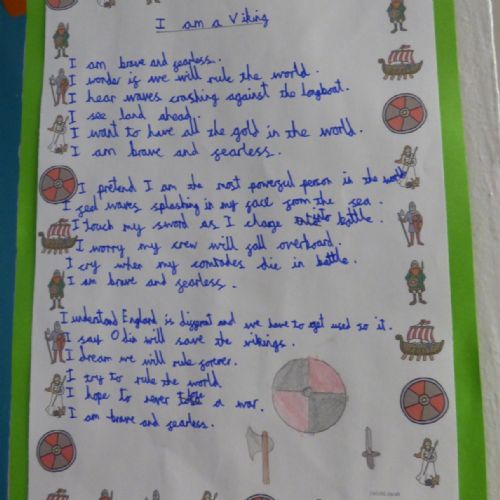 I am a Viking
I am brave and fearless.
I wonder if we will rule the world.
I hear waves crashing against the longboat.
I see land ahead.
I want to have all the gold in the world.
I am brave and fearless.
I pretend I am the most powerful person in the world
I feel waves splashing in my face from the sea.
I touch my sword as I charge into battle.
I worry my crew will fall overboard.
I cry when my comrades die in battle.
I am brave and fearless.
I understand England is diffrent and we have to get used to it.
I say Odin will save the vikings.
I dream we will rule forever.
I try to rule the world
I hope to never a war.
I am brave and fearless.